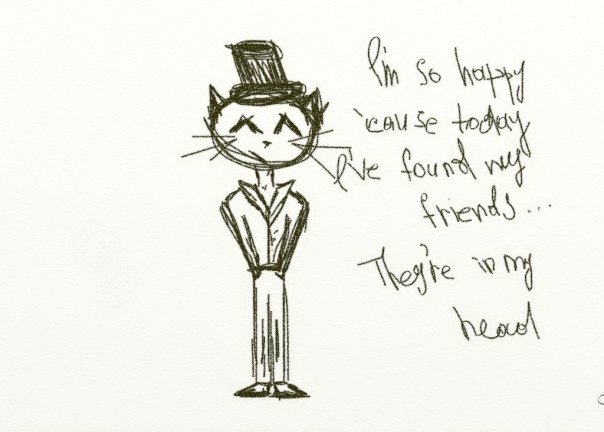 I'm so happy
'cause today
I've found my
friends...
They're in my
head